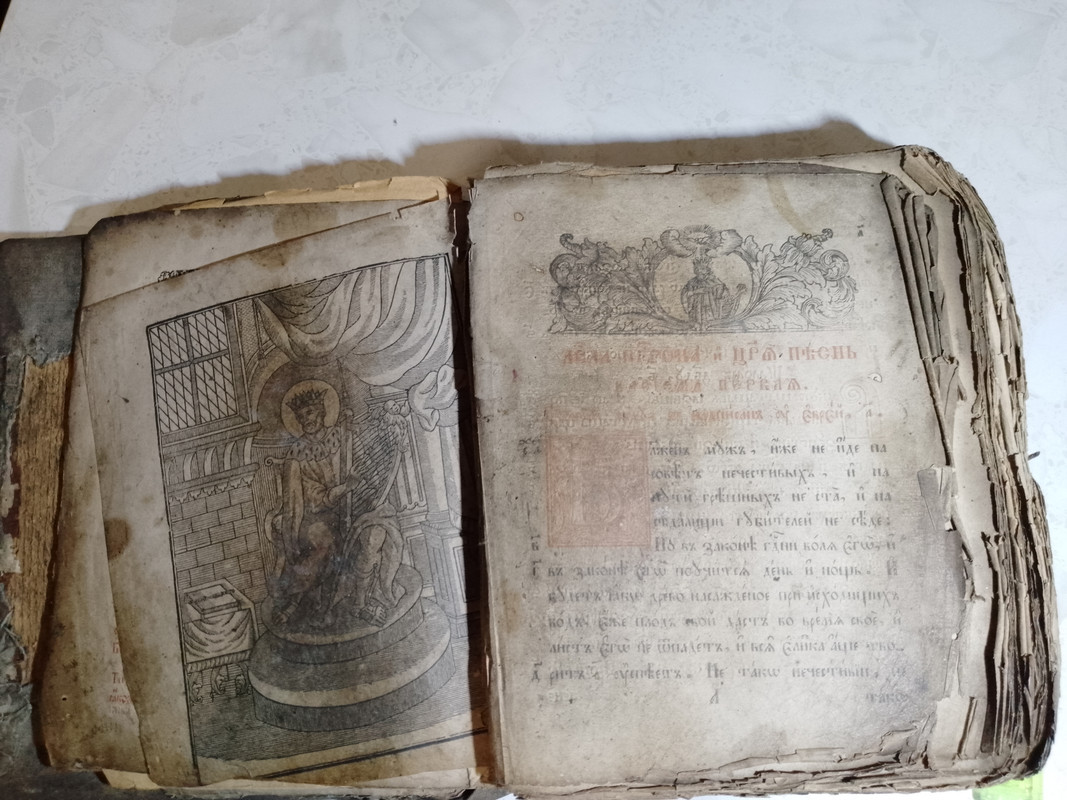 а҃
и Цр҃ѧ пѣснь
каѳїсма первая.
мꙋжъ, и҆́же не и҆́де на
совѣтъ нечестивыхъ, и҆ на
пꙋти грѣшныхъ не ста, и҆ на
сѣдалищи гꙋбителей не сѣде:
в҃ Но въ законѣ гдⷭ҇ни волѧ є҆гѡ̀, и҆
г҃ въ законѣ є҆гѡ̀ поꙋчитсѧ де́нь и҆ но́щь. И҆
бꙋдетъ ꙗ҆кѡ древо насажденое при исходищихъ
водъ, є҆́же плодъ свой дастъ во времѧ свое, и҆
листъ є҆гѡ̀ не ѿпадетъ, и҆ всѧ̑ є҆ли̑ка а҆ще тво-
д҃ ритъ ᲂу҆спѣетъ. Не такѡ нечестивїи, не
А҃ такѡ